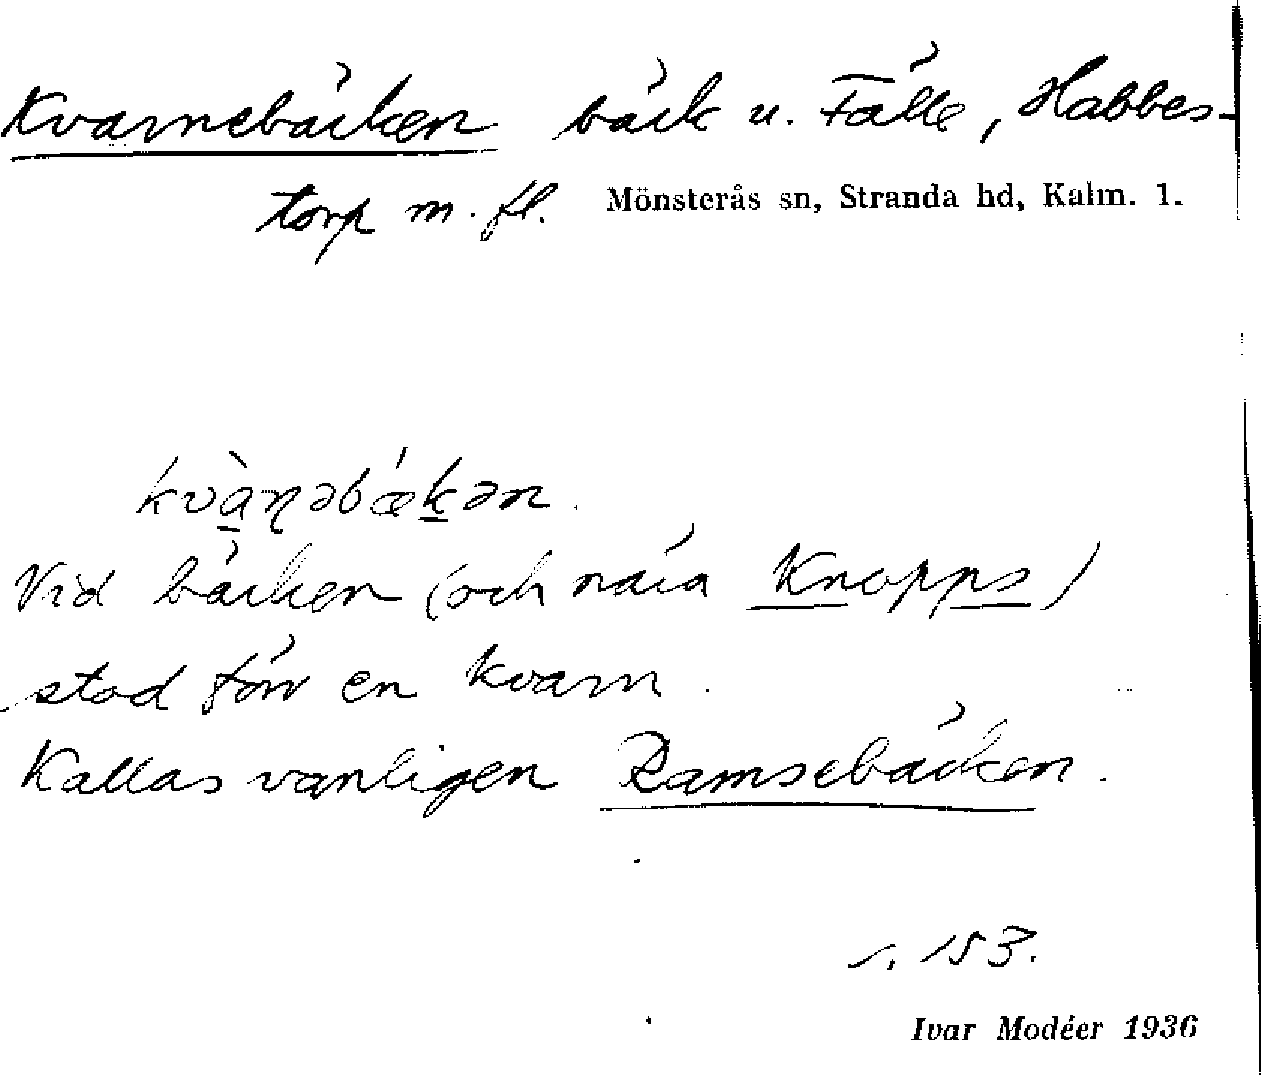 Kvarnebäcken bäck u. Fälle, Habbes-
torp m. fl. Mönsterås sn, Stranda hd, Kalm. l.
kvàɳəbǽkən.
Vid bäcken (och nära Knopps)
stod förr en kvarn.
Kallas vanligen Ramsebäcken.
s. 153.
Ivar Modéer 1936